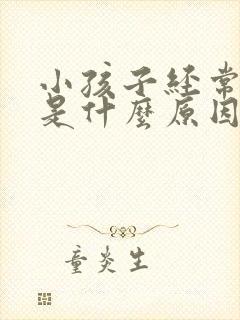 小孩子经常
是什麼原因
童炎生